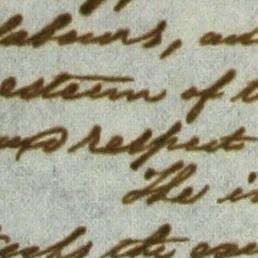 labours, and
esteem of t
and respect
The i
the